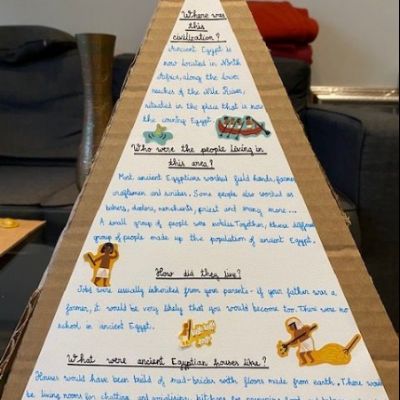 Where was
this
civilization?
Ancient Egypt is
now located in North
Africa, along the lower
reaches of the Nile River,
situated in the place that is now
the country Egypt.
Who were the people living in
this area?
Most ancient Egyptians worked field hands, farmers
craftsmen and scribes. Some people also worked as
bakers, doctors, merchants, priest and many more...
A small group of people were nobles. Together, these different
group of people made up the population of ancient Egypt.
How did they live?
Jobs were usually inherited from your parents - if your father was a
farmer, it would be very likely that you would become too. There were no
school in ancient Egypt.
What were ancient Egyptian houses like?
Houses would have been build of mud-bricks with floors made from earth. There would
be living rooms for chatting and socialising, kitchens for preparing food and